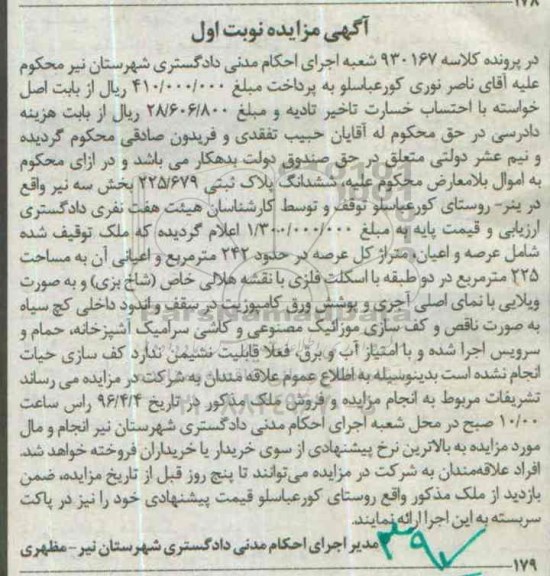 ۱۷۸
آگهی مزایده نوبت اول
در پرونده کلاسه ۹۳۰۱۶۷ شعبه اجرای احکام مدنی دادگستری شهرستان نیر محکوم
علیه آقای ناصر نوری کورعباسلو به پرداخت مبلغ ۴۱۰/۰۰۰/۰۰۰ ریال از بابت اصل
خواسته با احتساب خسارت تاخیر تادیه و مبلغ ۲۸/۶۰۶/۸۰۰ ریال از بابت هزینه
دادرسی در حق محکوم له آقایان حبیب تفقدی و فریدون صادقی محکوم گردیده
و نیم عشر دولتی متعلق در حق صندوق دولت بدهکار می باشد و در ازای محکوم
به اموال بلامعارض محکوم علیه، ششدانگ پلاک ثبتی ۲۲۵/۶۷۹ بخش سه نیر واقع
در ینر- روستای کورعباسلو توقف و توسط کارشناسان هیئت هفت نفری دادگستری
ارزیابی و قیمت پایه به مبلغ ۱/۳۰۰/۰۰۰/۰۰۰ اعلام گردیده که ملک توقیف شده
شامل عرصه و اعیان، متراژ کل عرصه در حدود ۲۴۲ مترمربع و اعیانی آن به مساحت
۲۲۵ مترمربع در دو طبقه با اسکلت فلزی با نقشه هلالی خاص (شاخ بزی) و به صورت
ویلایی با نمای اصلی آجری و پوشش ورق کامپوزیت در سقف و اندود داخلی گچ سیاه
به صورت ناقص و کف سازی موزائیک مصنوعی و کاشی سرامیک آشپزخانه، حمام و
سرویس اجرا شده و با امتیاز آب و برق، فعلا قابلیت نشیمن ندارد کف سازی حیات
انجام نشده است بدینوسیله به اطلاع عموم علاقه مندان به شرکت در مزایده می رساند
تشریفات مربوط به انجام مزایده و فروش ملک مذکور در تاریخ ۹۶/۴/۴ راس ساعت
۱۰/۰۰ صبح در محل شعبه اجرای احکام مدنی دادگستری شهرستان نیر انجام و مال
مورد مزایده به بالاترین نرخ پیشنهادی از سوی خریدار یا خریداران فروخته خواهد شد.
افراد علاقه‌مندان به شرکت در مزایده می‌توانند تا پنج روز قبل از تاریخ مزایده، ضمن
بازدید از ملک مذکور واقع روستای کورعباسلو قیمت پیشنهادی خود را نیز در پاکت
سربسته به این اجرا ارائه نمایند.
مدیر اجرای احکام مدنی دادگستری شهرستان نیر- مظهری
۱۷۹